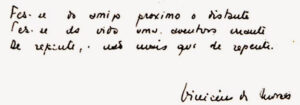 Fez-se do amigo próximo o distante
Fez-se da vida uma aventura errante
De repente, não mais que de repente.
Vinicius de Moraes